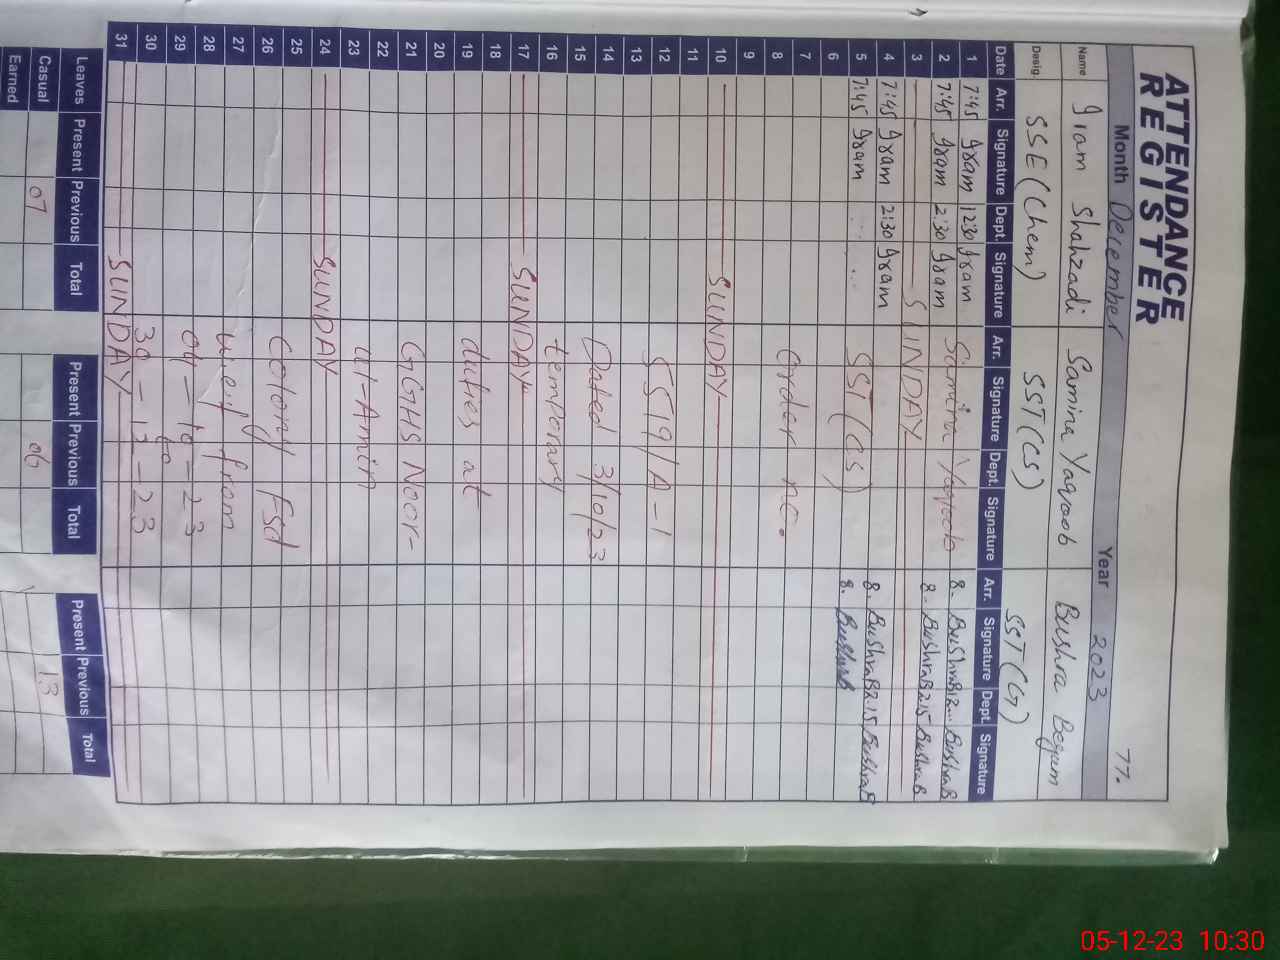 ATTENDANCE
REGISTER
Month December Year 2023 77.
Name Iram Shahzadi Samina Yaqoob Bushra Begum
Desig. SSE (Chem) SST (CS) SST (G)
Date Arr. Signature Dept. Signature Arr. Signature Dept. Signature Arr. Signature Dept. Signature
1 7:45 Iram 12:30 Iram 8- BushraB 12 BushraB
2 7:45 Iram 2:30 Iram Samina Yaqoob 8- BushraB 2:15 BushraB
3 SUNDAY
4 7:45 Iram 2:30 Iram 8. BushraB 2:15 BushraB
5 7:45 Iram SST (CS) 8. BushraB
6
7
8 Order no.
9
10 SUNDAY
11
12 5519/A-1
13
14 Dated 3/10/23
15
16 temporary
17 SUNDAY
18
19 duties at
20
21 GGHS Noor-
22
23 ul-Amin
24 SUNDAY
25
26 Colony Fsd
27 w.e.f from
28
29 04-10-23
to
30 30-12-23
31 SUNDAY
Leaves Present Previous Total Present Previous Total Present Previous Total
Casual 07 06 13
Earned
05-12-23 10:30